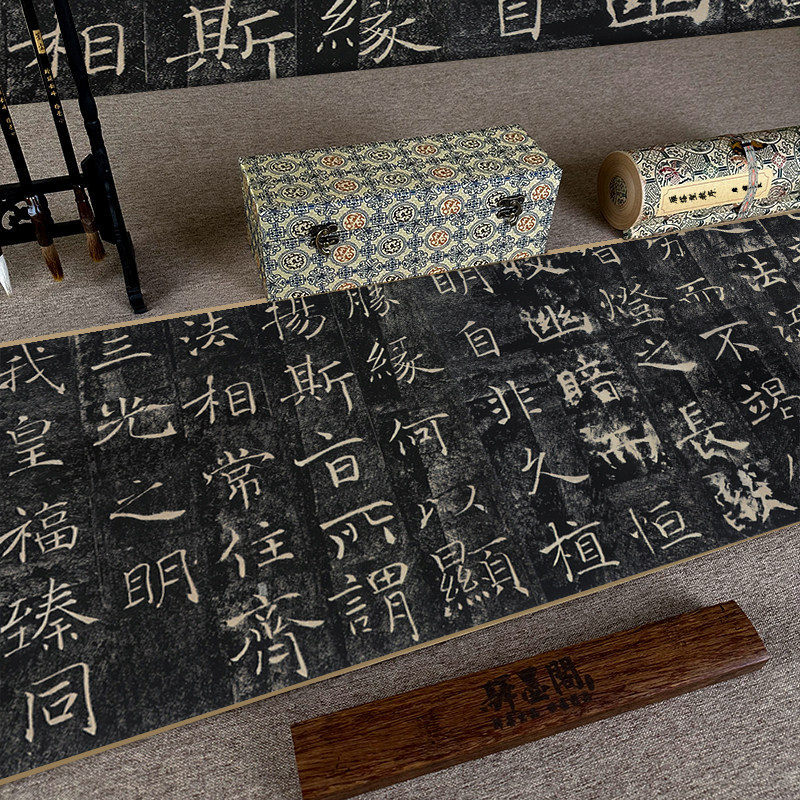 相
斯
緣
自
幽
法
而不竭
燈之長
幽暗而恒
明自非久植
勝緣何以顯
揚斯旨所謂
法相常住齊
三光之明
我皇福臻同
軒墨閣